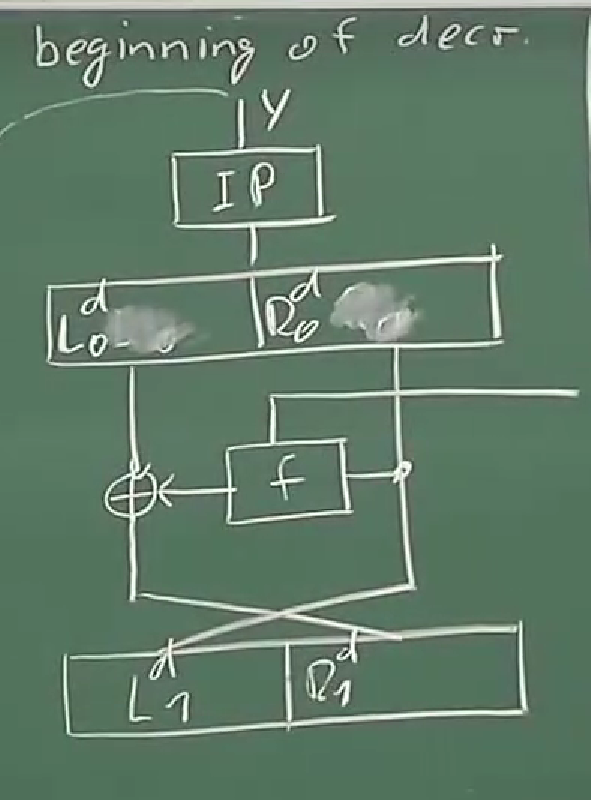 beginning of decr.
Y
IP
L₀ᵈ R₀ᵈ
f
L₁ᵈ R₁ᵈ